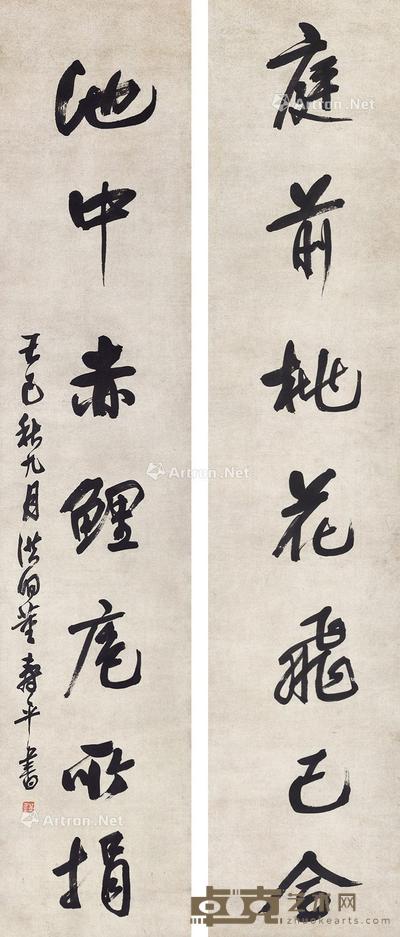 庭前桃花飛已合
池中赤鯉庖所捐
巳秋九月洪洞董壽平書
Artron.Net
Artron.Net
Artron.Net
Artron.Net
Artron.Net
卓克艺术网
zhuokearts.com